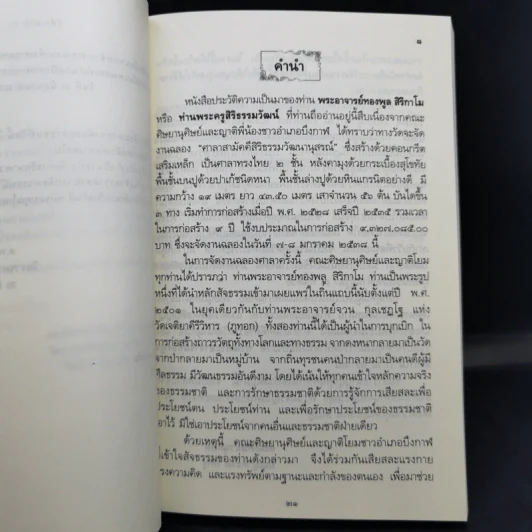 ๑
คำนำ
หนังสือประวัติความเป็นมาของท่าน พระอาจารย์ทองพูล สิริกาโม
หรือ ท่านพระครูสิริธรรมวัฒน์ ที่ท่านถืออ่านอยู่นี้สืบเนื่องจากคณะ
ศิษยานุศิษย์และญาติพี่น้องชาวอำเภอบึงกาฬ ได้ทราบว่าทางวัดจะจัด
งานฉลอง "ศาลาสามัคคีสิริธรรมวัฒนานุสรณ์" ซึ่งสร้างด้วยคอนกรีต
เสริมเหล็ก เป็นศาลาทรงไทย ๒ ชั้น หลังคามุงด้วยกระเบื้องสุโขทัย
พื้นชั้นบนปูด้วยปาเก้ชนิดหนา พื้นชั้นล่างปูด้วยหินแกรนิตอย่างดี มี
ความกว้าง ๑๙ เมตร ยาว ๔๓.๕๐ เมตร เสาจำนวน ๕๖ ต้น บันไดขึ้น
๓ ทาง เริ่มทำการก่อสร้างเมื่อปี พ.ศ. ๒๕๒๘ เสร็จปี ๒๕๓๕ รวมเวลา
ในการก่อสร้าง ๙ ปี ใช้งบประมาณในการก่อสร้าง ๙,๓๒๗,๐๘๕.๐๐
บาท ซึ่งจะจัดงานฉลองในวันที่ ๗-๘ มกราคม ๒๕๓๘ นี้
ในการจัดงานฉลองศาลาครั้งนี้ คณะศิษยานุศิษย์และญาติโยม
ทุกท่านได้ปรารภว่า ท่านพระอาจารย์ทองพลู สิริกาโม ท่านเป็นพระรูป
หนึ่งที่ได้นำหลักสัจธรรมเข้ามาเผยแพร่ในถิ่นแถบนี้นับตั้งแต่ปี พ.ศ.
๒๕๐๑ ในยุคเดียวกันกับท่านพระอาจารย์จวน กุลเชฏโฐ แห่ง
วัดเจติยาคีรีวิหาร (ภูทอก) ทั้งสองท่านนี้ได้เป็นผู้นำในการบุกเบิก ใน
การก่อสร้างถาวรวัตถุทั้งทางโลกและทางธรรม จากดงหนากลายมาเป็นวัด
จากป่ากลายมาเป็นหมู่บ้าน จากถิ่นทุรชนคนป่ากลายมาเป็นคนดีผู้มี
ศีลธรรม มีวัฒนธรรมอันดีงาม โดยได้เน้นให้ทุกคนเข้าใจหลักความจริง
ของธรรมชาติ และการรักษาธรรมชาติด้วยการรู้จักการเสียสละเพื่อ
ประโยชน์ตน ประโยชน์ท่าน และเพื่อรักษาประโยชน์ของธรรมชาติ
เอาไว้ มิใช่เอาประโยชน์จากคนอื่นและธรรมชาติฝ่ายเดียว
ด้วยเหตุนี้ คณะศิษยานุศิษย์และญาติโยมชาวอำเภอบึงกาฬ
เข้าใจสัจธรรมของท่านดังกล่าวมา จึงได้ร่วมกันเสียสละแรงกาย
แรงความคิด และแรงทรัพย์ตามฐานะและกำลังของตนเอง เพื่อมาช่วย
๒๑